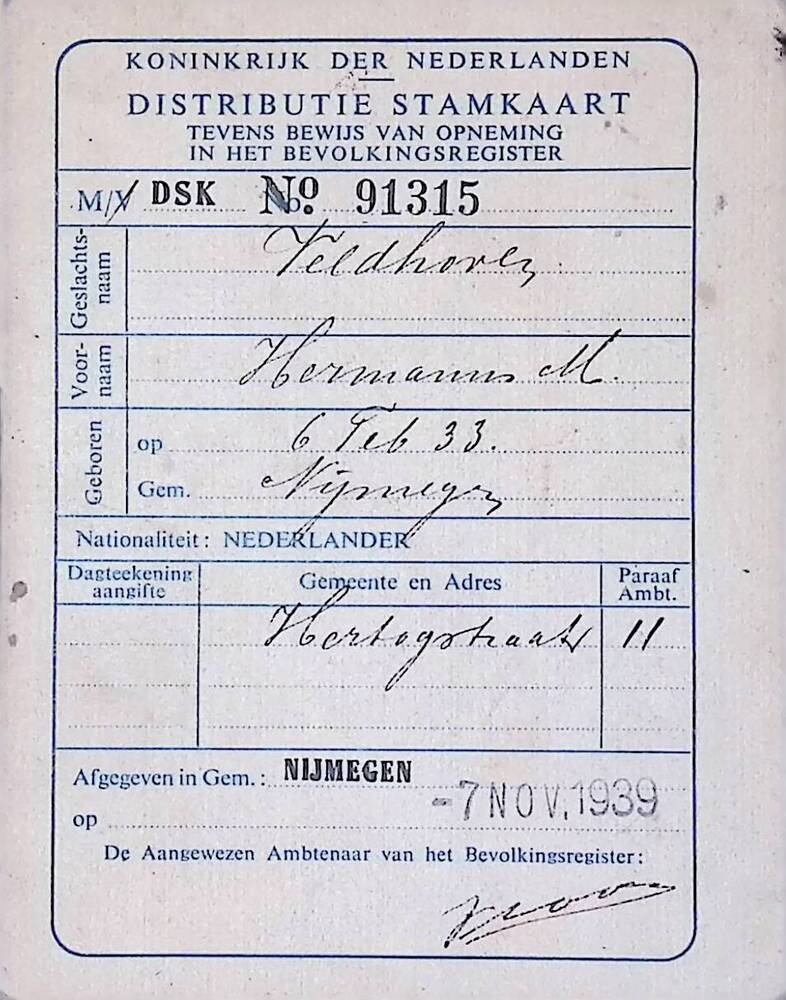 KONINKRIJK DER NEDERLANDEN
DISTRIBUTIE STAMKAART
TEVENS BEWIJS VAN OPNEMING
IN HET BEVOLKINGSREGISTER
M/V DSK No. 91315
Geslachts-
naam
Veldhoven
Voor-
naam
Hermanus M.
Geboren
op 6 Feb 33.
Gem. Nijmegen
Nationaliteit: NEDERLANDER
Dagteekening
aangifte
Gemeente en Adres
Paraaf
Ambt.
Hertogstraat 11
Afgegeven in Gem.: NIJMEGEN
op -7 NOV. 1939
De Aangewezen Ambtenaar van het Bevolkingsregister: